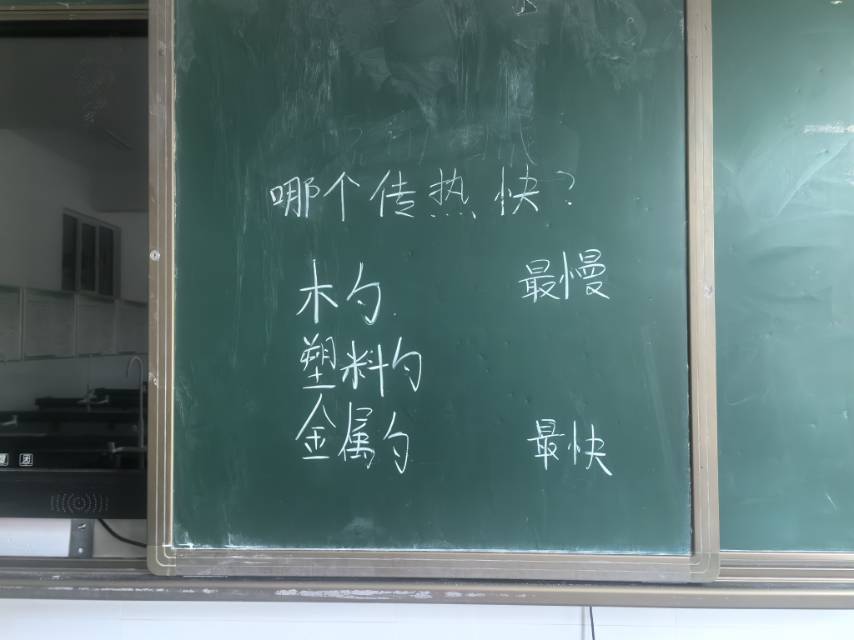 哪个传热快?
木勺 最慢
塑料勺
金属勺 最快